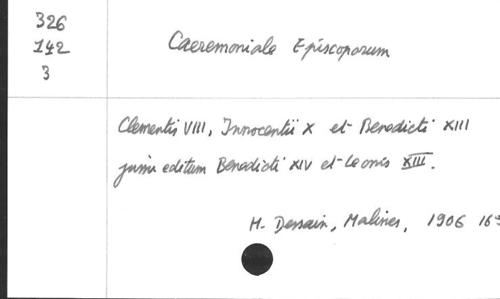 326
142
3
Caeremoniale Episcoporum
Clementis VIII, Innocentii X et Benedicti XIII
jussu editum Benedicti XIV et Leonis XIII.
H. Dessain, Malines, 1906 16°